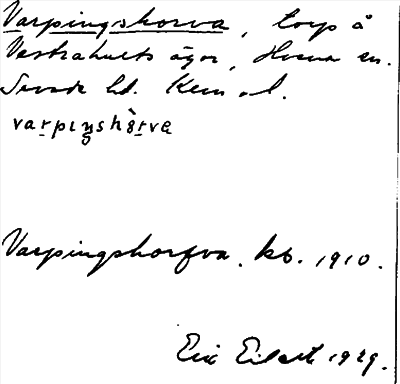 Varpingshorva, torp å
Vestrahults ägor, Horna sn.
Sevede hd. Kalm. l.
varpıŋshòrva
Varpingshorfva. kb. 1910.
Eric Eilert 1929.